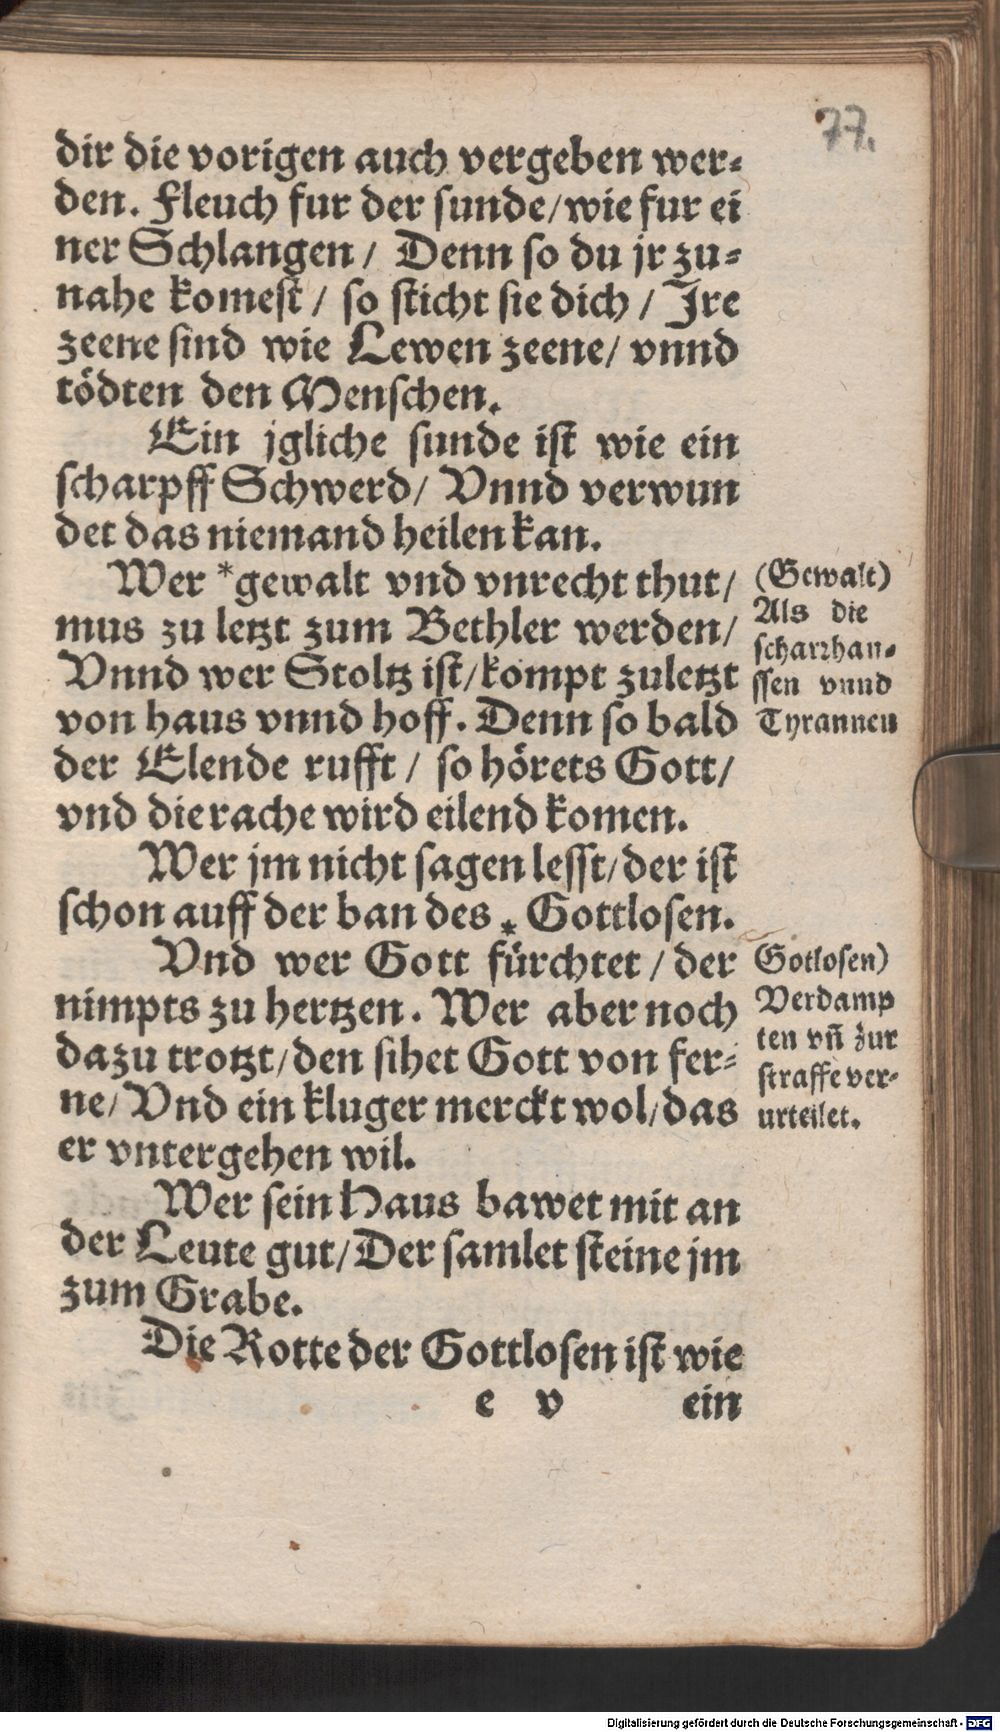 77.
dir die vorigen auch vergeben wer⸗
den. Fleuch fur der sunde/wie fur ei
ner Schlangen/ Denn so du jr zu⸗
nahe komest/ so sticht sie dich/ Ire
zeene sind wie Lewen zeene/ vnnd
tödten den Menschen.
Ein jgliche sunde ist wie ein
scharpff Schwerd/ Vnnd verwun
det das niemand heilen kan.
Wer *gewalt vnd vnrecht thut/
mus zu letzt zum Bethler werden/
Vnnd wer Stoltz ist/kompt zuletzt
von haus vnnd hoff. Denn so bald
der Elende rufft/ so hörets Gott/
vnd die rache wird eilend komen.
(Gewalt)
Als die
scharrhan⸗
ssen vnnd
Tyrannen
Wer jm nicht sagen lesst/der ist
schon auff der ban des * Gottlosen.
Vnd wer Gott fürchtet/ der
nimpts zu hertzen. Wer aber noch
dazu trotzt/den sihet Gott von fer⸗
ne/ Vnd ein kluger merckt wol/das
er vntergehen wil.
Gotlosen)
Verdamp
ten vn̄ zur
straffe ver⸗
urteilet.
Wer sein Haus bawet mit an
der Leute gut/Der samlet steine jm
zum Grabe.
Die Rotte der Gottlosen ist wie
e v ein
Digitalisierung gefördert durch die Deutsche Forschungsgemeinschaft - DFG